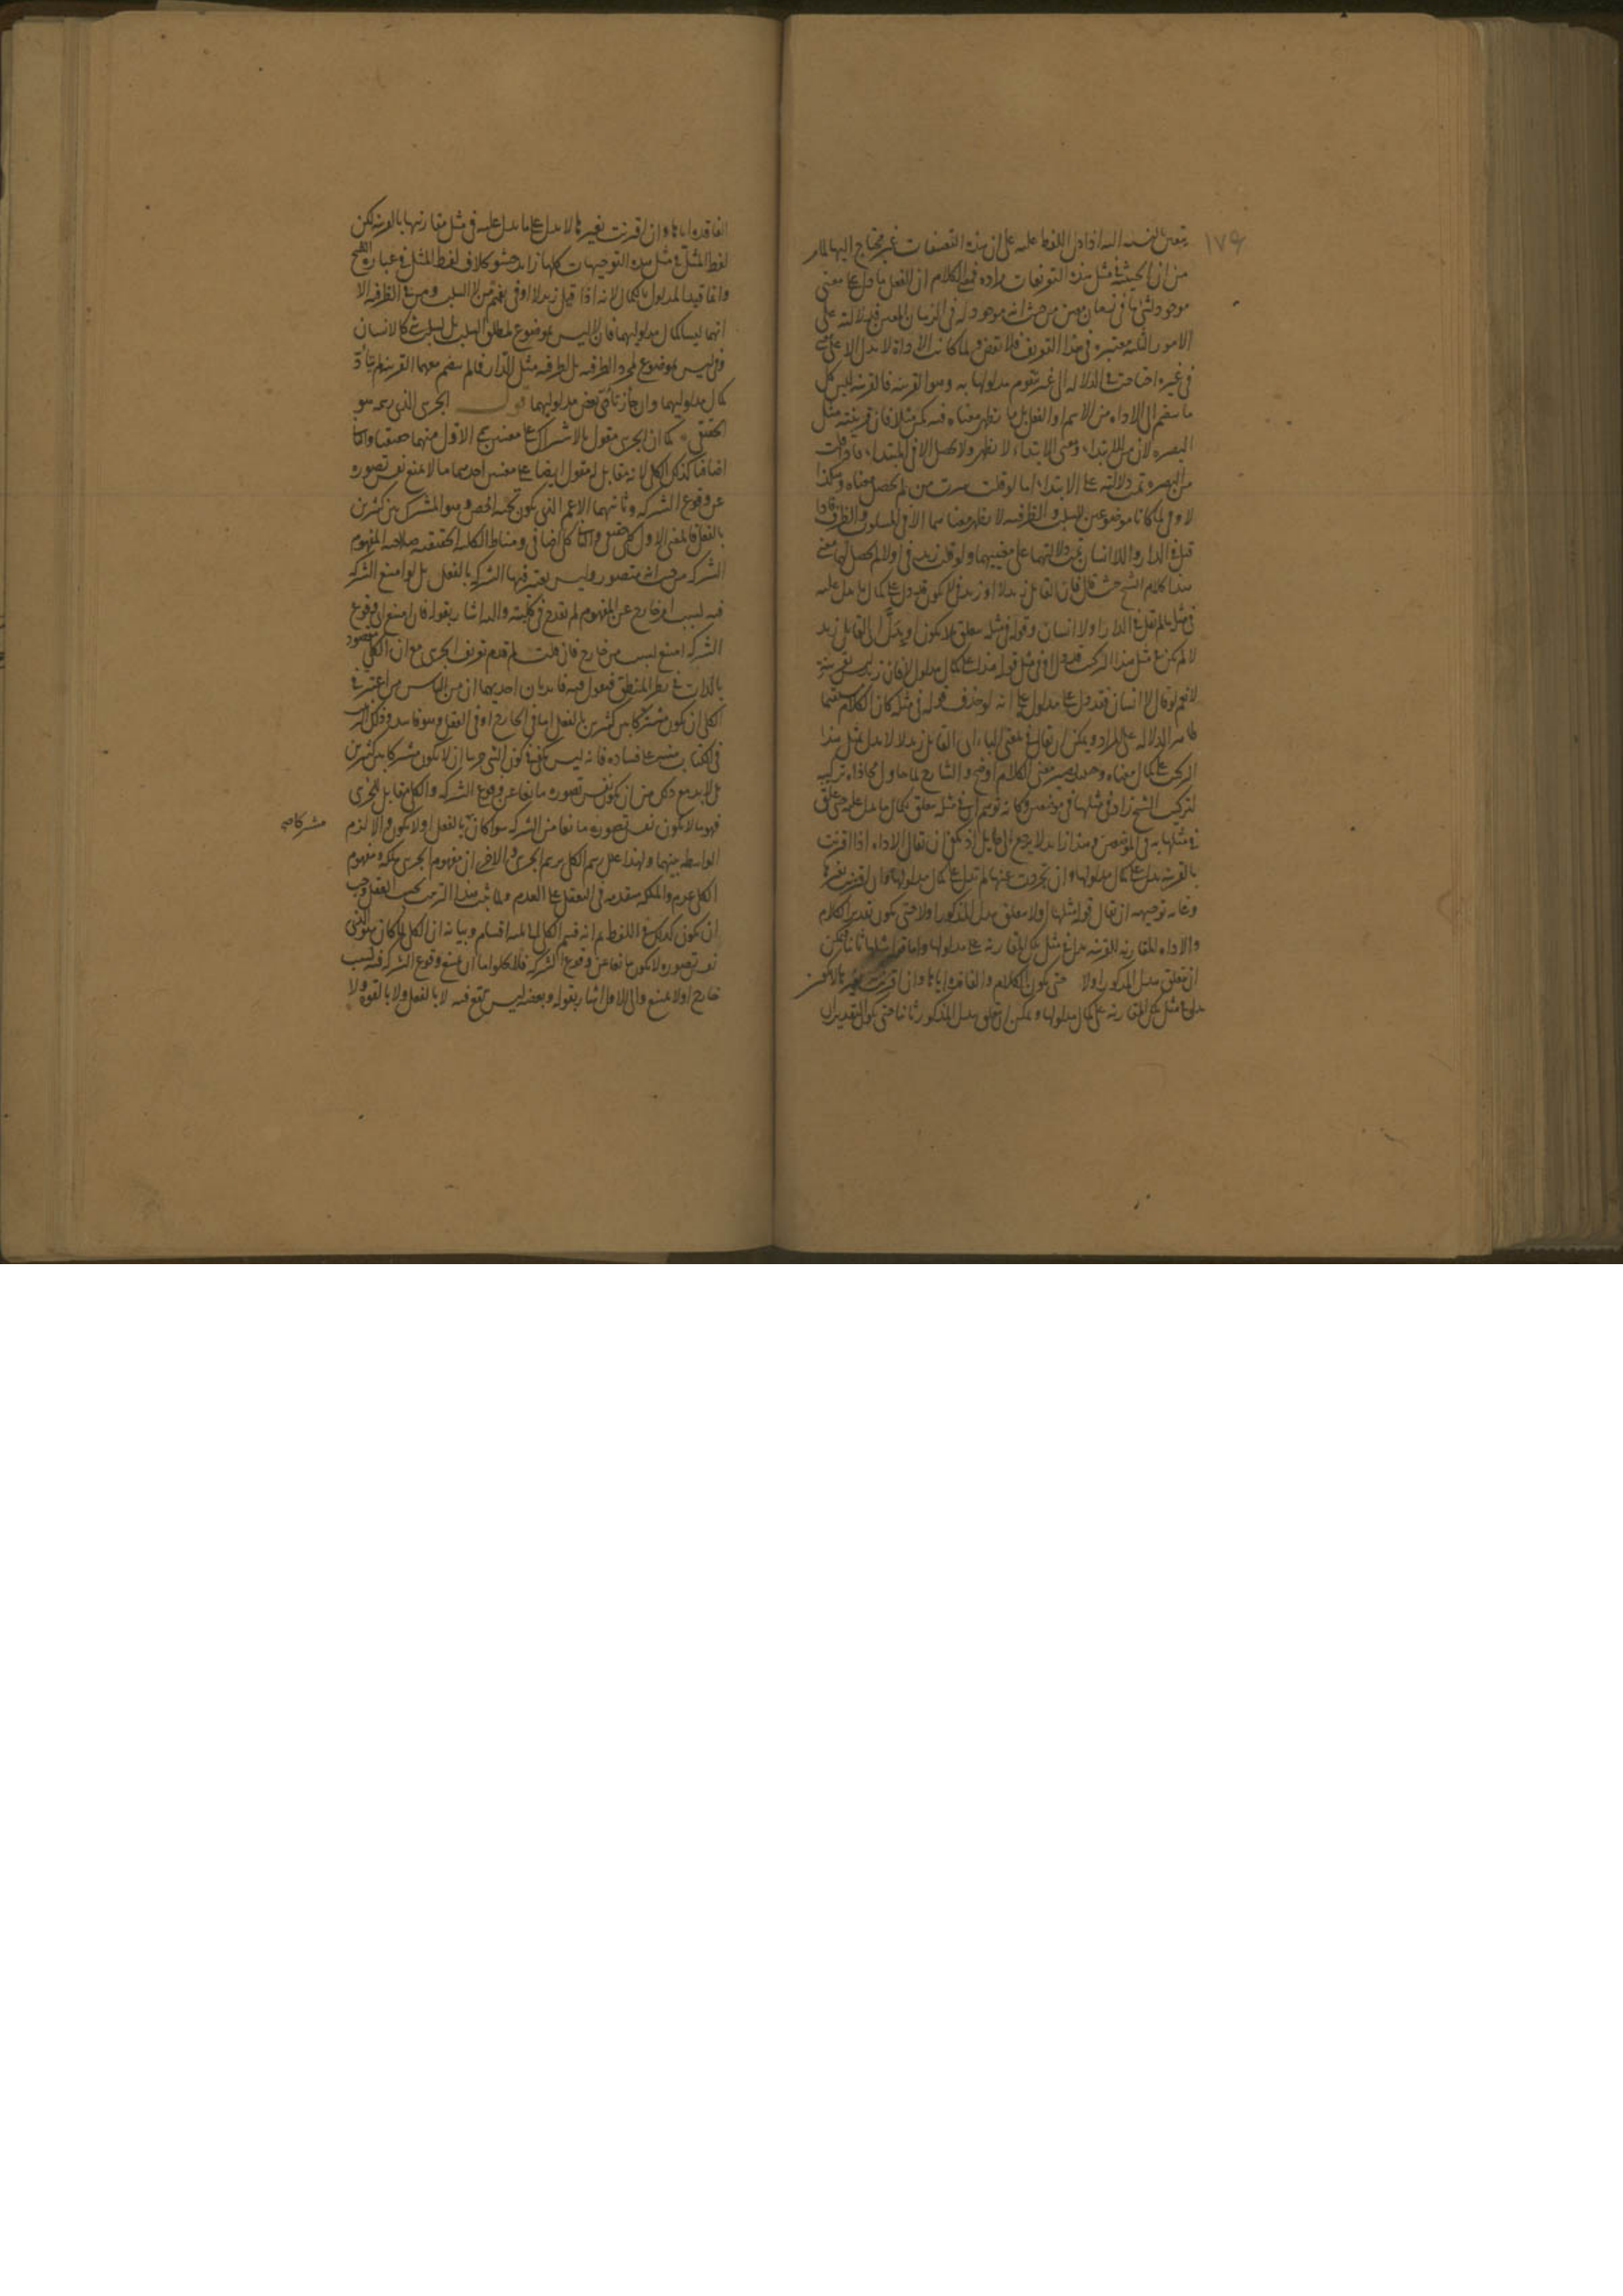 ١٧٩
يتعين لنسبه اليه اذا دل اللفظ عليه على ان هذه التعسفات غير محتاج اليها لما مر
من ان الحيثية في مثل هذه التعريفات مراده فمعنى الكلام ان الفعل ما دل على معنى
موجود لشي ما في زمان معين من حيث انه موجود له في الزمان المعين فدلالته على
الامور الثلثه معتبره في هذا التعريف فلا نقض ولما كانت الاداة لا تدل الا على معنى
في غيره احتاجت في الدلاله الى غير يتقوم مدلولها به وهو القرينه فالقرينه ليس كل
ما ينضم الى الاداه من الاسم والفعل بل ما يظهر معناه فيه كمن مثلا فان قرينته مثل
البصره لان من للابتداء ومعنى الابتداء لا يظهر ولا يحصل الا في المبتداء فاذا قلت
من البصره تمت دلالته على الابتداء اما لو قلت سرت من لم يحصل معناه وهكذا
لا وفي لما كانا موضوعين للسلب والظرفيه لا يظهر معناهما الا في المسلوب والظرف فاذا
قيل في الدار واللا انسان تمت دلالتهما على معنييهما ولو قلت زيد في او لا لم يحصل لهما معنى
هذا كلام الشيخ حيث قال فان القائل زيد لا او زيد في لا يكون قد دل على كمال ما يدل عليه
في مثله ما لم يقل في الدار او لا انسان وقوله في مثله متعلق بلا يكون او يدل اي القائل زيد
لا لم يكن في مثل هذا التركيب قد دل
لا نعم لو قال لا انسان فقد دل على مدلول على انه لو حذف قوله في مثله كان الكلام مستقيما
ظاهر الدلاله على المراد ويمكن ان يقال في بمعنى الباء اي القائل زيد لا لا يدل بمثل هذا
التركيب على كمال معناه وحينئذ يصير معنى الكلام اوضح والشارح لما حاول محاذاة تركيبه
لتركيب الشيخ زاد في مثلها في موضعين وكانه توهم ان في مثله متعلق بكمال ما يدل عليه حتى علق
في مثلها به في الموضعين وهذا زايد لا يرجع الى طايل اذ يكفي ان يقال الاداه اذا اقترنت
بالقرينه يدل على كمال مدلولها وان تجردت عنها لم تدل على كمال مدلولها وان اقترنت بغيرها
وغايه توجيهه ان يقال قوله مثلها اولا متعلق بيدل المذكور اولا حتى يكون تقدير الكلام
والاداه المقارنه للقرينه يدل في مثل تلك المقارنه على مدلولها واما قوله في مثلها ثانيا فيمكن
ان يتعلق بيدل المذكور اولا حتى يكون الكلام والفاقده اياها وان اقترنت بغيرها لا يكون
يدل في مثل تلك المقارنه على كمال مدلولها ويمكن ان يتعلق بيدل المذكور ثانيا حتى يكون التقدير ان
الفاقده اياها وان اقترنت بغيرها لا يدل على ما يدل عليه في مثل مقارنتها بالقرينه لكن
لفظ المثل في مثل هذه التوجيهات كلها زايد حشو بخلاف لفظ المثل في عبارة الشيخ
وانما قيد المدلول بالكمال لانه اذا قيل زيد لا او في يفهم من لا السلب ومن في الظرفيه الا
انهما ليسا كمال مدلوليهما فان لا ليس بموضوع لمطلق السلب بل لسلب شي كالانسان
وفي ليس بموضوع لمجرد الظرفيه بل لظرفيه مثل الدار فما لم ينضم معهما القرينه لم يتادّ
كمال مدلوليهما وان جاز تأدّي بعض مدلوليهما قول الجزئي الذي رسمه هو
الحقيقي كما ان الجزئي مقول بالاشتراك على معنيين سمي الاول منهما حقيقيا والثاني
اضافيا كذلك الكلي لانه يقابله مقول ايضا على معنيين احدهما ما لا يمنع نفس تصوره
عن وقوع الشركه وثانيهما الاعم الذي يكون تحته اخص وهو المشترك بين كثيرين
بالفعل فالمعنى الاول كلي حقيقي والثاني كلي اضافي ومناط الكليه الحقيقيه صلاحيه المفهوم
الشركه من حيث انه متصور وليس يعتبر فيها الشركه بالفعل بل لو امتنع الشركه
فيه لسبب امر خارج عن المفهوم لم يقدح في كليته واليه اشار بقوله فان امتنع اي وقوع
الشركه امتنع لسبب من خارج فان قلت لم قدم تعريف الجزئي مع ان الكلي مقصود
بالذات في نظر المنطقي فنقول فيه فائدتان احديهما ان من الناس من اعتبر في
الكلي ان يكون مشتركا بين كثيرين بالفعل اما في الخارج او في العقل وهو فاسد وذلك الترتيب
في الكتاب منبه على فساده فانه ليس يكفي في كون الشي جزئيا ان لا يكون مشتركا بين كثيرين
بل لا بد مع ذلك من ان يكون نفس تصوره مانعا عن وقوع الشركه والكلي مقابل للجزئي
فهو ما لا يكون نفس تصوره مانعا من الشركه سوا كان بالفعل او لا يكون والا لزم
مشتركا صح
الواسطه بينهما ولهذا علل رسم الكلي برسم الجزئي والاخرى ان مفهوم الجزئي ملكه ومفهوم
الكلي عدم والملكه متقدمه في التعقل على العدم ولما ثبت هذا الترتيب بحسب العقل وجب
ان يكون كذلك في اللفظ ثم انه قسم الكلي الى سته اقسام وبيانه ان الكلي لما كان هو الذي
نفس تصوره لا يكون مانعا عن وقوع الشركه فلا يخلو اما ان يمتنع وقوع الشركه فيه لسبب
خارج او لا يمتنع والى الاول اشار بقوله وبعضه ليس يقع فيه لا بالفعل ولا بالقوه ولا